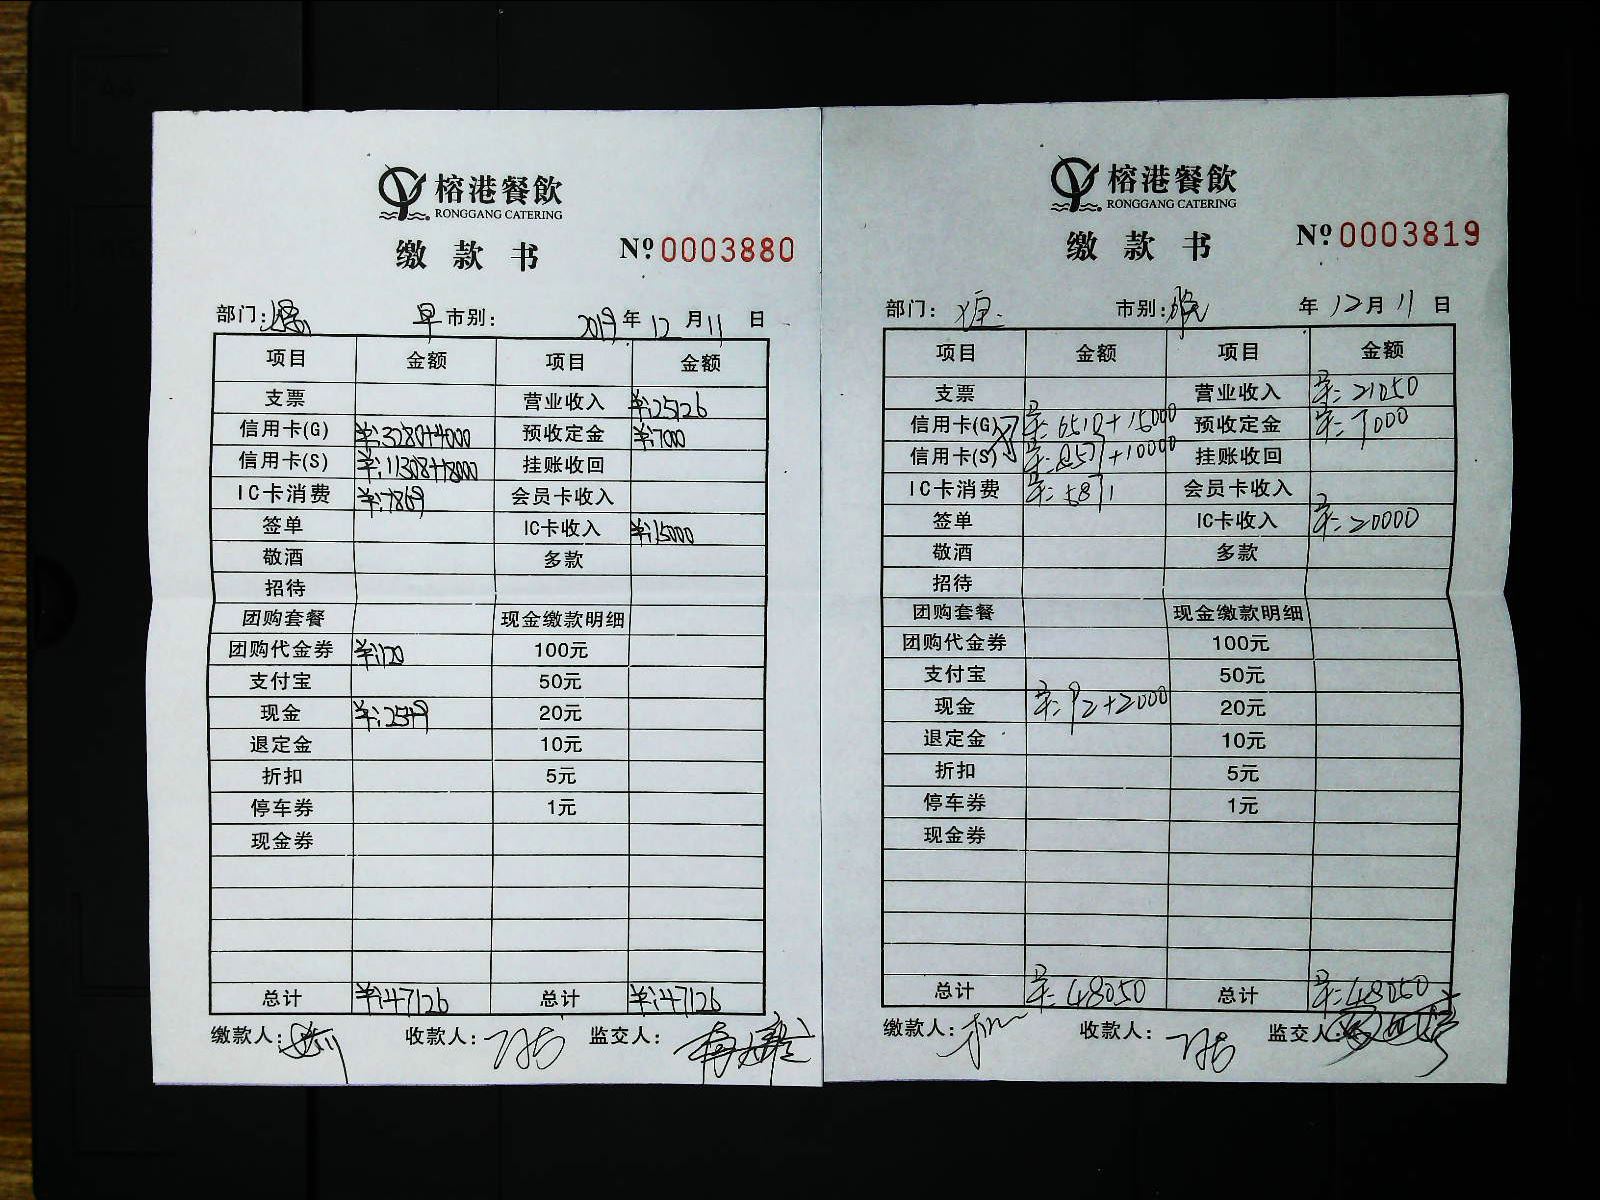 榕港餐飲
RONGGANG CATERING
缴款书
№ 0003880
部门: 早市别: 2019年12月11日
项目 金额 项目 金额
支票 营业收入 ¥:25126
信用卡(G) ¥:3280+4000 预收定金 ¥:7000
信用卡(S) ¥:11308+18000 挂账收回
IC卡消费 ¥:7869 会员卡收入
签单 IC卡收入 ¥:15000
敬酒 多款
招待
团购套餐 现金缴款明细
团购代金券 ¥:120 100元
支付宝 50元
现金 ¥:2549 20元
退定金 10元
折扣 5元
停车券 1元
现金券
总计 ¥:47126 总计 ¥:47126
缴款人: 收款人: 监交人:
榕港餐飲
RONGGANG CATERING
缴款书
№ 0003819
部门: 市别:晚 年12月11日
项目 金额 项目 金额
支票 营业收入 ¥:21050
信用卡(G) ¥:6510+15000 预收定金 ¥:7000
信用卡(S) ¥:8577+10000 挂账收回
IC卡消费 ¥:5871 会员卡收入
签单 IC卡收入 ¥:20000
敬酒 多款
招待
团购套餐 现金缴款明细
团购代金券 100元
支付宝 50元
现金 ¥:92+2000 20元
退定金 10元
折扣 5元
停车券 1元
现金券
总计 ¥:48050 总计 ¥:48050
缴款人: 收款人: 监交人: